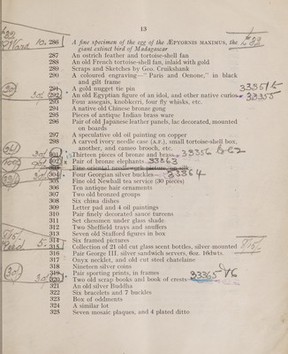 13
286 A fine specimen of the egg of the ÆPYORNIS MAXIMUS, the
giant extinct bird of Madagascar
287 An ostrich feather and tortoise-shell fan
288 An old French tortoise-shell fan, inlaid with gold
289 Scraps and Sketches by Geo. Cruikshank
290 A coloured engraving—"Paris and Oenone," in black
and gilt frame
291 A gold nugget tie pin
292 An old Egyptian figure of an idol, and other native curios
293 Four assegais, knobkerri, four fly whisks, etc.
294 A native old Chinese bronze gong
295 Pieces of antique Indian brass ware
296 Pair of old Japanese leather panels, lac decorated, mounted
on boards
297 A speculative old oil painting on copper
298 A carved ivory needle case (A.F.), small tortoise-shell box,
another, and cameo brooch, etc.
Thirteen pieces of bronze and brass
Pair of bronze elephants 33363
Four Georgian silver buckles 33364
Fine old Newhall tea service (30 pieces)
306 Ten antique hair ornaments
307 Two old drawings
308 Six china dishes
309 Letter pad and 4 oil paintings
310 Pair finely decorated sauce tureens
311 Set chessmen under glass shade
312 Two Sheffield trays and snuffers
313 Seven old Stafford figures in box
314 Six framed pictures
315 Collection of 21 old cut glass scent bottles, silver mounted
316 Pair George III. silver sandwich servers, 6oz. 16dwts.
317 Onyx necklet, and old cut steel chatelaine
318 Nineteen silver coins
319 Pair sporting prints, in frames
320 Two old scrap books and book of crests
321 An old silver Buddha
322 Six bracelets and 7 buckles
323 Box of oddments
324 A similar lot
325 Seven mosaic plaques, and 4 plated ditto